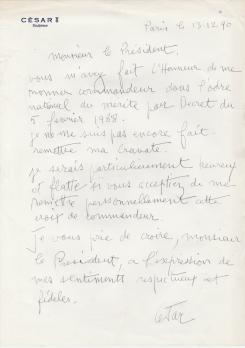 CÉSAR
Sculpteur
Paris le 13.12.90
Monsieur le Président,
vous m'avez fait l'Honneur de me
nommer commandeur dans l'odre
national du merite par Decret du
5 fevrier 1988.
je ne me suis pas encore fait
remettre ma Cravate.
je serais particulierement heureux
et flatté si vous acceptiez de me
remettre personnellement cette
croix de commandeur.
Je vous prie de croire, monsieur
le President, a l'expression de
mes sentiments respectueux et
fideles.
César